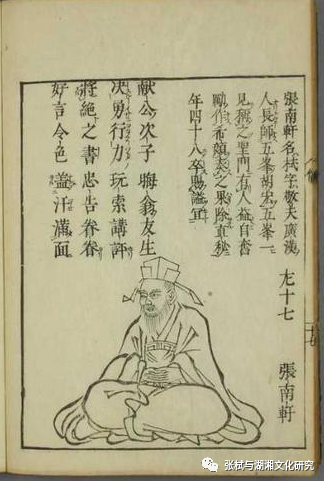 左十七　張南軒
張南軒名栻字敬夫廣漢
人長師五峯胡宏五峯一
見稱之聖門有人益自奮
勵作希顔之果除直秘
年四十八卒賜謚宣
献公次子　晦翁友生
决勇行力　玩索講評
將絶之書　忠告眷眷
好言令色　盖汗滿面
张栻与湖湘文化研究